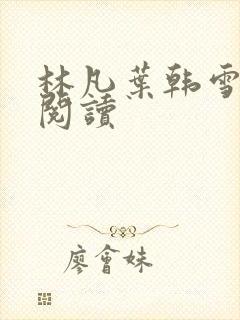 林凡葉韩雪
閱讀
廖會妹